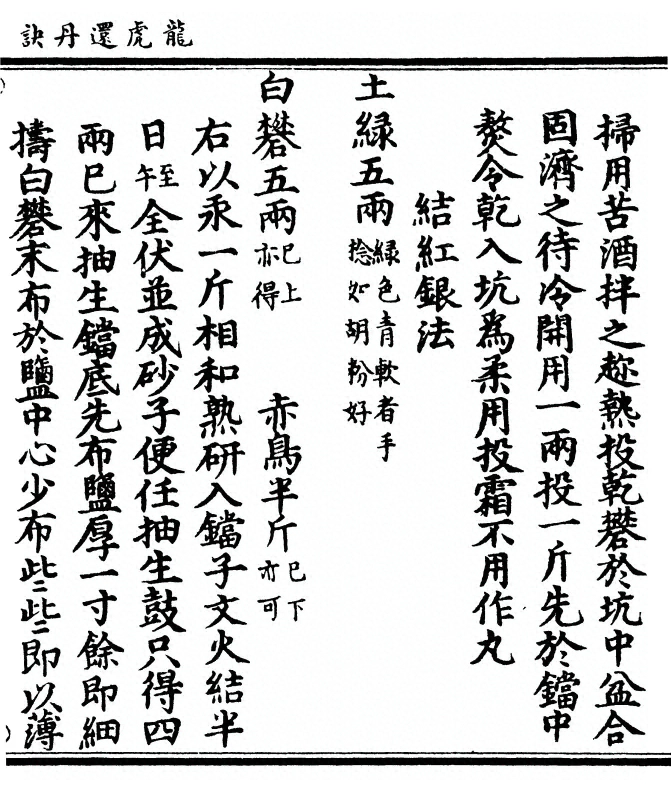 龍虎還丹訣
掃用苦酒拌之趂熱投乾礬於坑中盆合
固濟之待冷開用一兩投一斤先於鐺中
熬令乾入坑為柔用投霜不用作丸
結紅銀法
土緑五兩緑色青軟者手捻如胡粉好
白礬五兩已上亦得 赤鳥半斤已下亦可
右以汞一斤相和熟研入鐺子文火結半
日至午全伏並成砂子便任抽生鼓只得四
兩巳來抽生鐺底先布鹽厚一寸餘即細
擣白礬末布於鹽中心少布些些即以薄